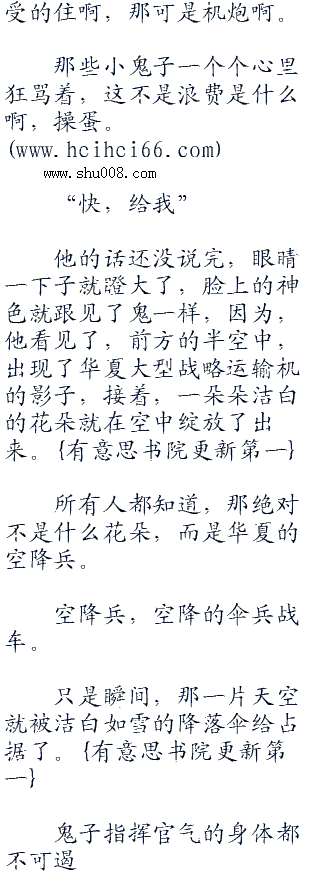 受的住啊，那可是机炮啊。
那些小鬼子一个个心里
狂骂着，这不是浪费是什么
啊，操蛋。
(www.hcihci66.com)
www.shu008.com
“快，给我”
他的话还没说完，眼睛
一下子就瞪大了，脸上的神
色就跟见了鬼一样，因为，
他看见了，前方的半空中，
出现了华夏大型战略运输机
的影子，接着，一朵朵洁白
的花朵就在空中绽放了出
来。{有意思书院更新第一}
所有人都知道，那绝对
不是什么花朵，而是华夏的
空降兵。
空降兵，空降的伞兵战
车。
只是瞬间，那一片天空
就被洁白如雪的降落伞给占
据了。{有意思书院更新第
一}
鬼子指挥官气的身体都
不可遏